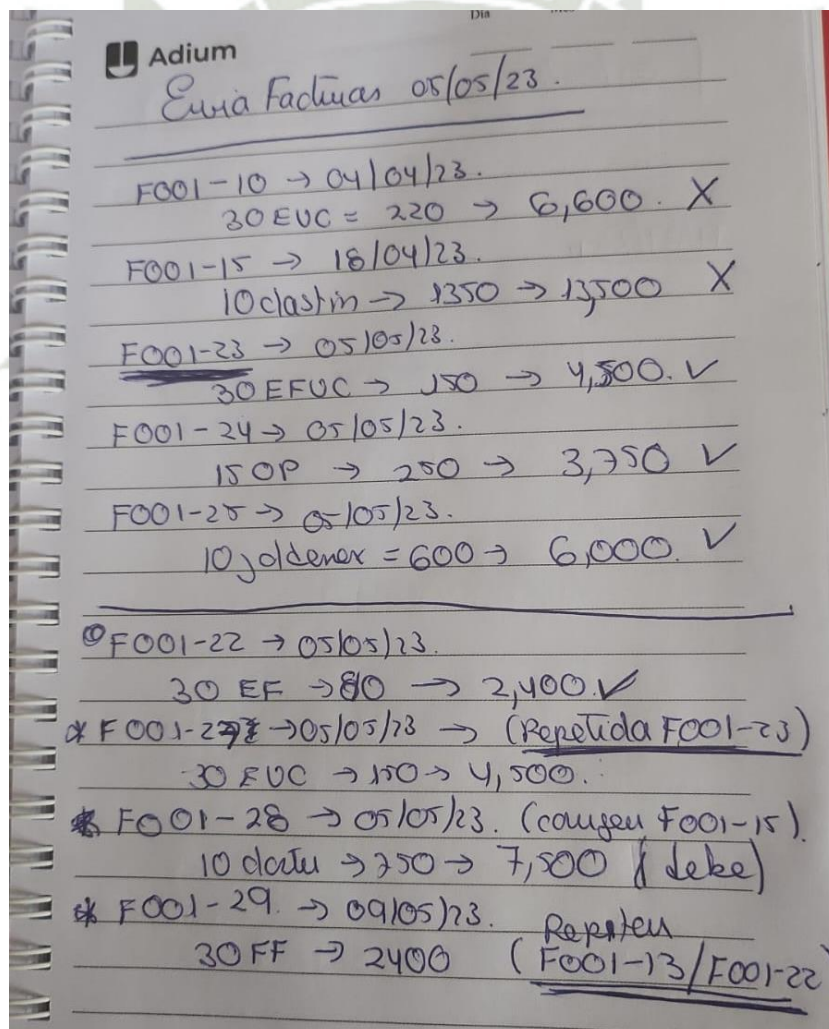 Dia
Adium
Envia Facturas 05/05/23.
F001-10 → 04/04/23.
30 EUC = 220 → 6,600. X
F001-15 → 18/04/23.
10 clastin → 1350 → 13,500 X
F001-23 → 05/05/23.
30 EFUC → 150 → 4,500. ✓
F001-24 → 05/05/23.
15 OP → 250 → 3,750 ✓
F001-25 → 05/05/23.
10 joldener = 600 → 6,000. ✓
F001-22 → 05/05/23.
30 EF → 80 → 2,400. ✓
F001-27 → 05/05/23 → (Repetida F001-23)
30 EUC → 150 → 4,500.
* F001-28 → 05/05/23. (corrigen F001-15).
10 → 750 → 7,500 (debe)
* F001-29. → 09/05/23. Repiten
30 FF → 2400 (F001-13/F001-22